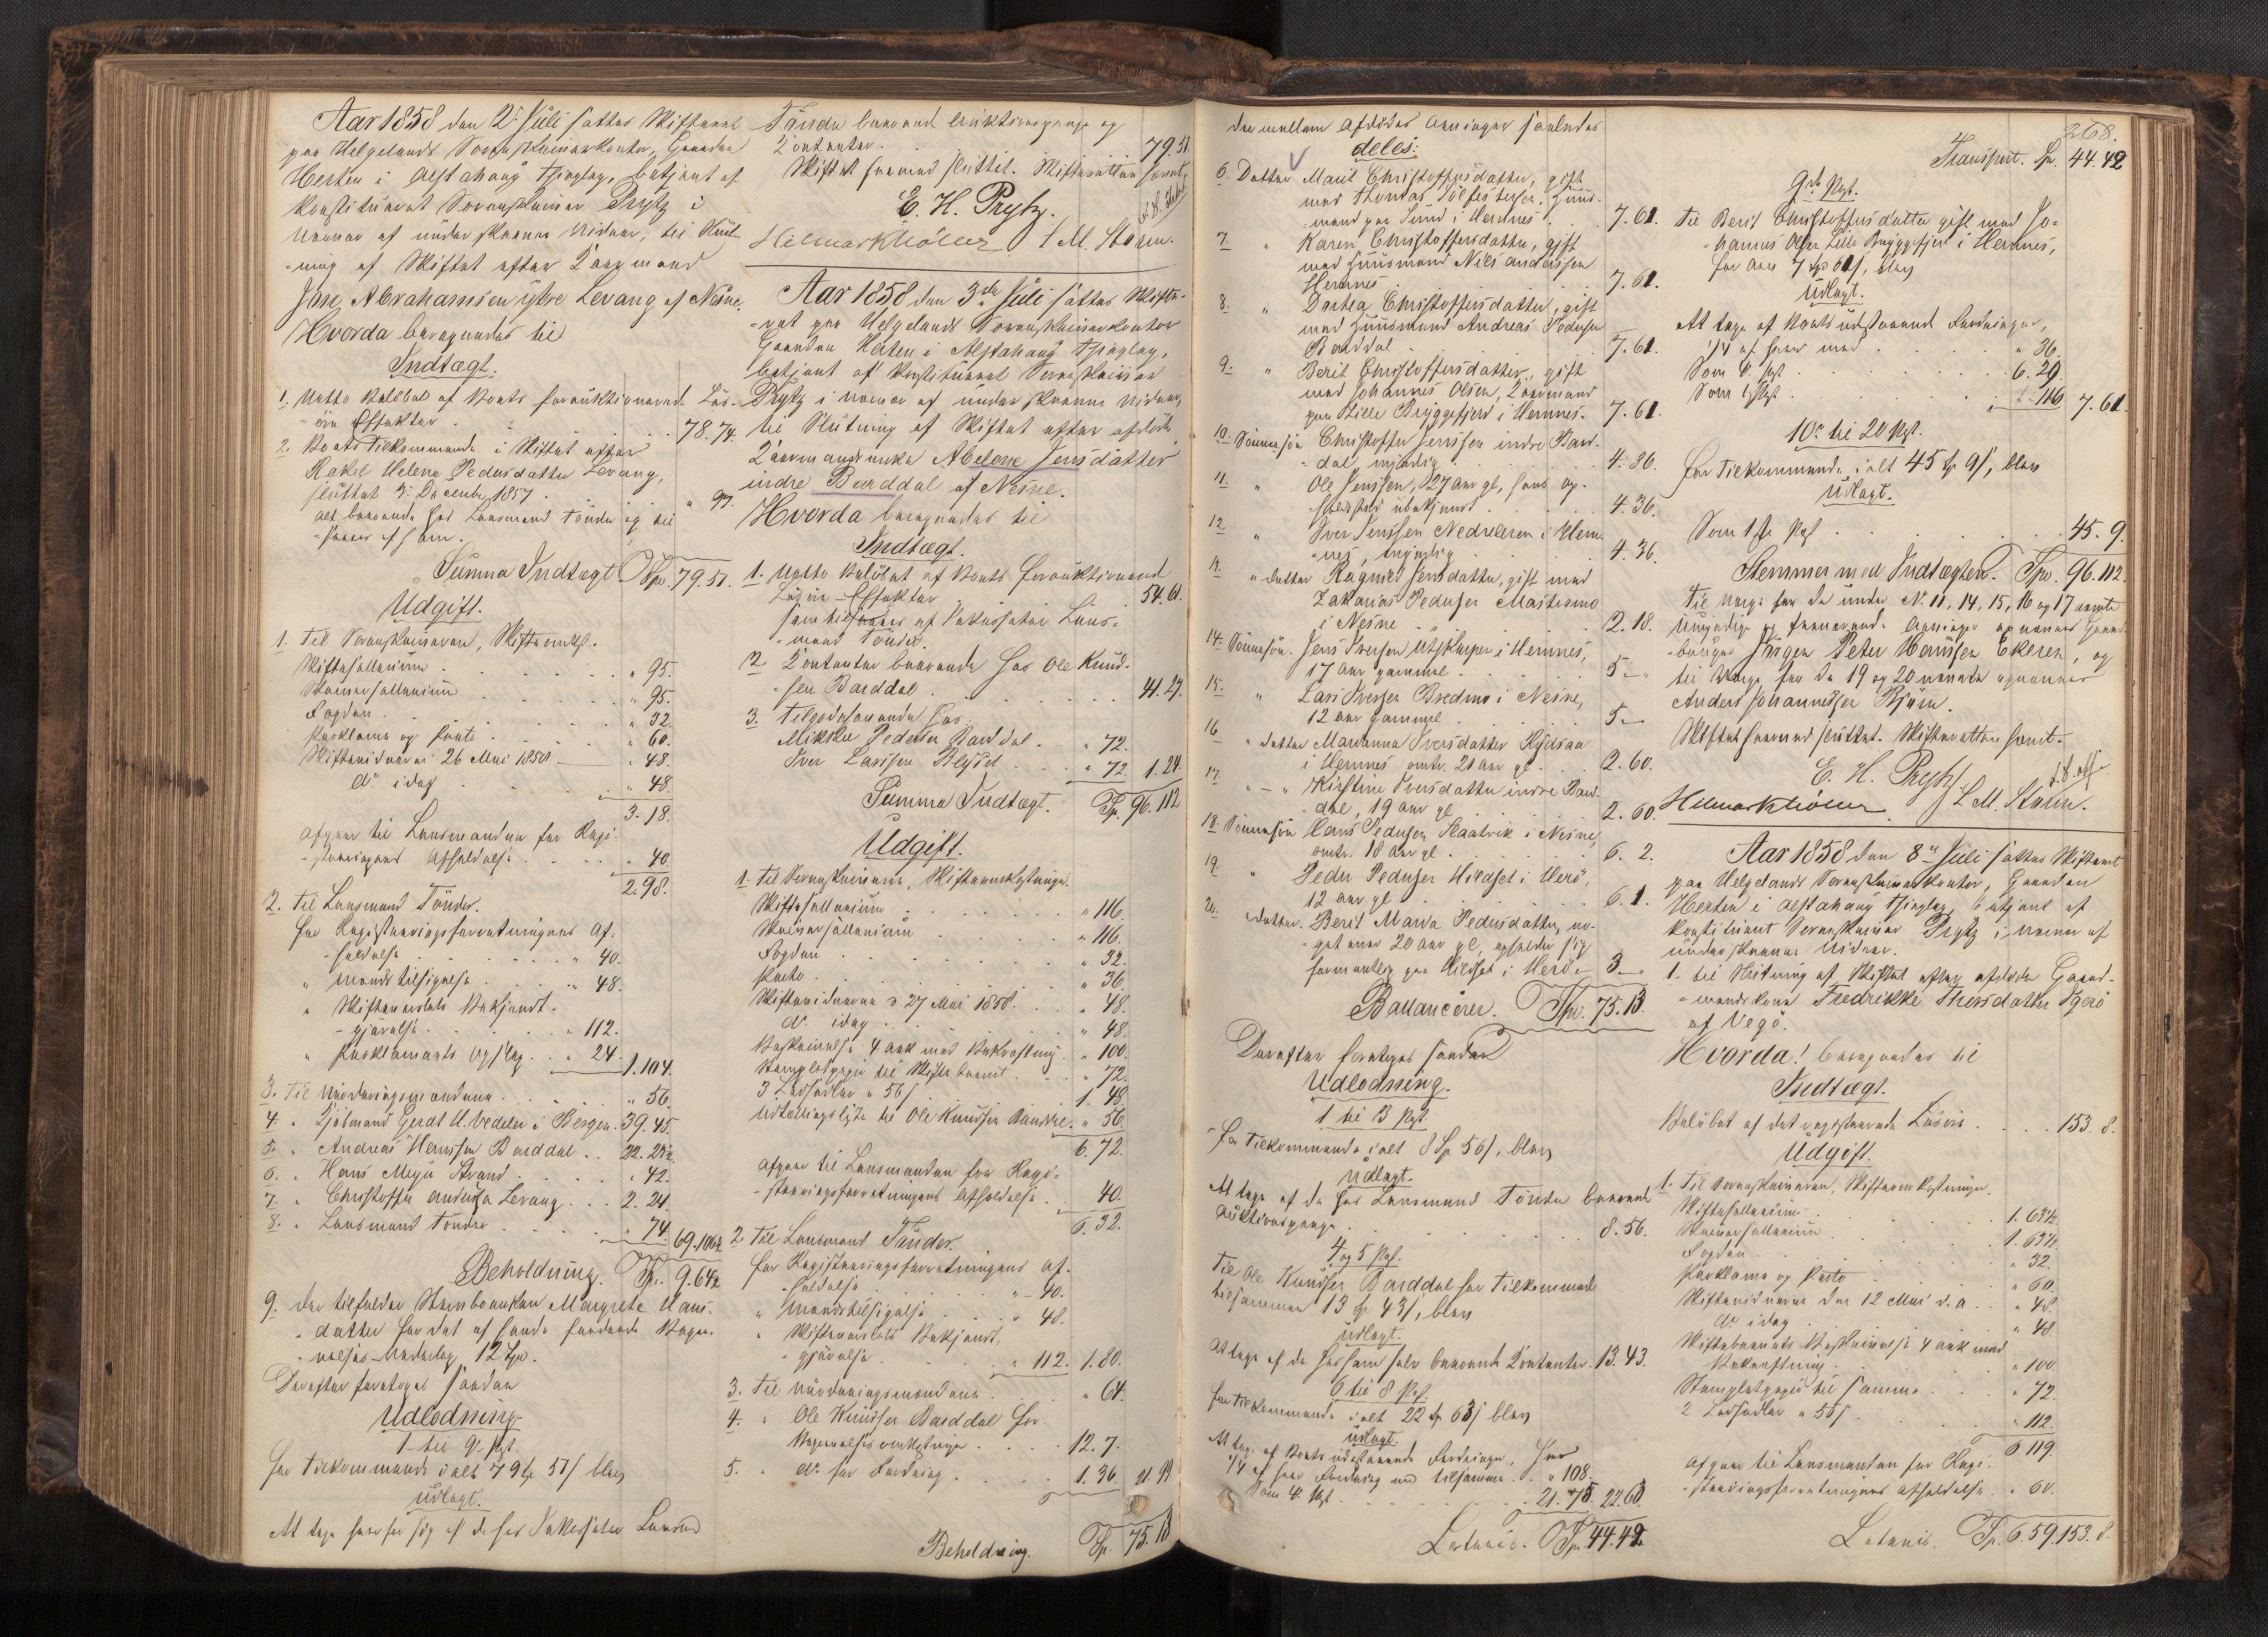 Aar 1858 den 2 Juli sattes Skifteret
paa Helgelands Sorenskriverkontor, Gaarden
Herten i Alstahaug Thinglag, betjent af
konstitueret Sorenskriver Prytz i
Nærvær af underskrevne Vidner, til Slut-
-ning af Skiftet efter Leermand
Jon Abrahamsen ytre Levang af Nesne.
Hvorda beregnedes til
Indtægt.
1. Netto Beløbet af Boets forauktionerede Løs-
-øre Effekter . . . 78. 74.
2. Boets Tilkommende i Skiftet efter
Rakel Helena Pedersdatter Levang,
sluttet 3. December 1857 . . . " 97.
alt beroende hos Lensmand Tønder og til-
-svares af ham.
Summa Indtægt Spd. 79. 51.
Udgift.
1. Til Sorenskriveren, Skifteomk.
Skiftesallarium . . . " 95.
Skriversallarium . . . " 95.
Fogden . . . " 32.
Proklama og Porto . . . " 60.
Skiftevidnerne 26 Mai 1858 " 48.
do idag . . . " 48.
3. 18.
Afgaar til Lensmanden for Regi-
-streringens Afholdelse . . . " 40.
2. 98.
2. Til Lensmand Tønder.
for Registreringsforretningens Af-
-holdelse . . . " 40.
" Mænds tilsigelse . . . " 48.
" Skiftesamlings Bekjendt-
-gjørelse . . . " 112.
" Proklamaets Opslag . . " 24. 1. 104.
3. Til Vurderingsmændene . . . " 56.
4. " Kjøbmand Gerdt H. Vedeler i Bergen. 39. 45.
5. " Andreas Hansen Barddal . . 22. 25½
6. " Hans Meyer Strand . . . " 42.
7. " Christoffer Andersen Levang . . . 2. 24.
8. " Lensmand Tønder . . . " 74. 69. 106½
Beholdning. Spd. 9. 64½
9. der tilfalder Stervboenken Margrete Hans-
-datter for det af hende havende Begra-
-velses-Vederlag 12 Spd.
Derefter foretoges saadan
Udlodning.
1 til 9 Pgt.
for Tilkommende i alt 79 Sp 51 s blev
udlagt.
At tage hver for sig af de hos Inkassator Lensmd
Tønder beroende Auktionspenge og
Kontanter. 79. 51
Skiftet saaved sluttet. Skifteretten hævet.
E. H. Prytz.
Hilmarktiöller L M. Storm.
Aar 1858 den 3die Juli sattes Skifte-
-ret paa Helgelands Sorenskriverkontor
Gaarden Herten i Alstahaug Thinglag,
betjent af konstitueret Sorenskriver
Prytz i Nærvær af underskrevne Vidner,
til Slutning af Skiftet efter afdøde
Leermandsenke Abelone Jensdatter
indre Barddal af Nesne.
Hvorda beregnedes til
Indtægt.
1. Netto Beløbet af Boets forauktionerede
Løsøre-Effekter . . . 54. 61.
som tilsvares af Inkassator Lens-
-mand Tønder.
2. Kontanter beroende hos Ole Knud-
-sen Barddal . . . 41. 27.
3. Tilgodehavende hos
Mikkel Pedersen Barddal . . " 72.
Iver Larssen . . . " 72. 1. 24.
Summa Indtægt. Sp. 96. 112
Udgift.
1. Til Sorenskriveren, Skifteomkostninger.
Skiftesallarium . . . " 116.
Skriversallarium . . . " 116.
Fogden . . . " 32.
Porto . . . " 36.
Skiftevidnerne d 27 Mai 1858. . . " 48.
do idag . . . " 48.
Beskrivelse 4 ark med Bekræftning . " 100.
Stemplet papir til Skiftebrevet . . . " 72.
3 Lodsedler a 56 s . . . 1. 48.
Udtællingslyste til Ole Knudsen " 56.
6. 72.
Afgaar til Lensmanden for Regi-
-streringsforretningens Afholdelse . " 40.
6. 32.
2. Til Lensmand Tønder.
for Registreringsforretningens Af-
-holdelse . . . " 40.
" Mændstilsigelse . . . " 48.
" Skiftesamlings Bekjendt-
-gjørelse . . . " 112. 1. 80.
3. Til Vurderingsmændene . . . " 64.
4. " Ole Knudsen Barddal for
Begravelsesomkostninger . . . 12. 7.
5. " do for Fordring . . . 1. 36. 21. 99
Beholdning. Sp. 75. 13
der mellem Afdødes Arvinger saaledes
deles:
6. Datter Marit Christoffersdatter, gift
med Thomas Huus-
-mand paa Sund i Hemnes . 7. 61.
7. " Karen Christoffersdatter, gift
med Huusmand Nils Anderssen
Hemnes 7. 61.
8. " Dortea Christoffersdatter, gift
med Huusmand Andreas Pedersen
Barddal . . . 7. 61.
9. " Berit Christoffersdatter, gift
med Johannes Olsen, Leermand
paa Lille Bryggefjeld i Hemnes. 7. 61.
10. Sønnesøn Christoffer Jenssen indre Bard-
-dal, myndig . . . 4. 36.
11. " Ole Jenssen, 27 Aar gl, hans Op-
-holdssted ubekjendt . . . 4. 36.
12. " Iver Jenssen Nedreleren i Hem-
-nes, myndig . . . 4. 36.
13. " datter Ragnild Jensdatter, gift med
Zakarias Pedersen Mastermo
i Nesne . . . 2. 18.
14. Sønnesøn. Jens Iversen Utskarpen i Hemnes,
17 Aar gammel . . . 5. "
15. " Lars Iversen Bredmo i Nesne,
12 Aar gammel . . . 5. "
16. " datter Marianna Iversdatter Rydsaa
i Hemnes omtr. 21 Aar gl . . 2. 60.
17. " - " Kirstine Iversdatter indre Bard-
-dal, 19 Aar gl . . . 2. 60.
18. Sønnesøn Hans Pedersen Slaatvik i Nesne,
omtr. 18 Aar gl . . . 6. 2.
19. " Peder Pedersen Hildset i Herö,
12 Aar gl . . . 6. 1.
20. " datter. Berit Maria Pedersdatter, no-
-get over 20 Aar gl, opholder sig
formentlig paa Hildset i Herö. 3. "
Ballancerer. Spd. 75. 13.
Derefter foretoges saadan
Udlodning.
1 til 3 Pgt.
For Tilkommende i alt 8 Sp 56 s, blev
udlagt.
At tage af de hos Lensmand Tønder beroende
Auktionspenge . . . 8. 56.
4 og 5 Pgt.
Til Ole Knudsen Barddal for Tilkommende
tilsammen 13 Sp 43 s, blev
udlagt.
At tage af de hos ham selv beroende Kontanter. 13. 43.
6 til 8 Pgt.
for Tilkommende i alt 22 Sp 63 s blev
udlagt.
At tage af Boets udestaaende Fordringer,
1/4 af hver Fordring med tilsammen . . " 108.
Som 4 Pgt . . . 21. 75. 22. 63.
Lateris. Sp. 44. 42.
268.
Transport. Sp. 44. 42
9de Pgt.
Til Berit Christoffersdatter gift med Jo-
-hannes Olsen Lille Bryggefjeld i Hemnes,
for Arv 7 Sp 61 s, blev
udlagt.
At tage af Boets udestaaende Fordringer,
1/4 af hver med . . . " 36.
Som 4 Pgt . . . 6. 29.
Som 1 Pgt . . . " 116 7. 61.
10 til 20 Pgt.
for Tilkommende i alt 45 Sp 9 s, blev
udlagt.
Som 1ste Pgt . . . 45. 9.
Stemmer med Indtægten. Spd. 96. 112.
Til Værge for de under No. 11, 14, 15, 16 og 17 nævnte
Umyndige og fraværende Arvinger opnævnes Gaard-
-bruger Jürgen Peter Hanssen Ekeren, og
til Værge for de 19 og 20 nævnte opnævnes
Anders Johannessen
Skiftet saaved sluttet. Skifteretten hævet.
E. H. Prytz
Hilmarktiöller L M. Storm.
Aar 1858 den 8de Juli sattes Skifteret
paa Helgelands Sorenskriverkontor, Gaarden
Herten i Alstahaug Thinglag, betjent af
konstitueret Sorenskriver Prytz i Nærvær af
underskrevne Vidner.
1. til Slutning af Skiftet efter afdøde Gaard-
-mandskone Fredrikke Thersdatter Igerö
af Vegö.
Hvorda! beregnedes til
Indtægt.
Beløbet af det registrerede Løsøre . . . 153. 8.
Udgift.
1. Til Sorenskriveren, Skifteomkostninger.
Skiftesallarium . . . 1. 63½
Skriversallarium . . . 1. 63½
Fogden . . . " 32.
Proklama og Porto . . . " 60.
Skiftevidnerne den 12 Mai d. A. . " 48.
do idag . . . " 48.
Skiftebrevets Beskrivelse 4 ark med
Bekræftning . . . " 100.
Stempletpapir til samme . . . " 72.
2 Lodsedler a 56 s . . . " 112.
6 119.
Afgaar til Lensmanden for Regi-
-streringsforretningens Afholdelse . " 60.
Lateris. Sp. 6. 59. 153. 8.